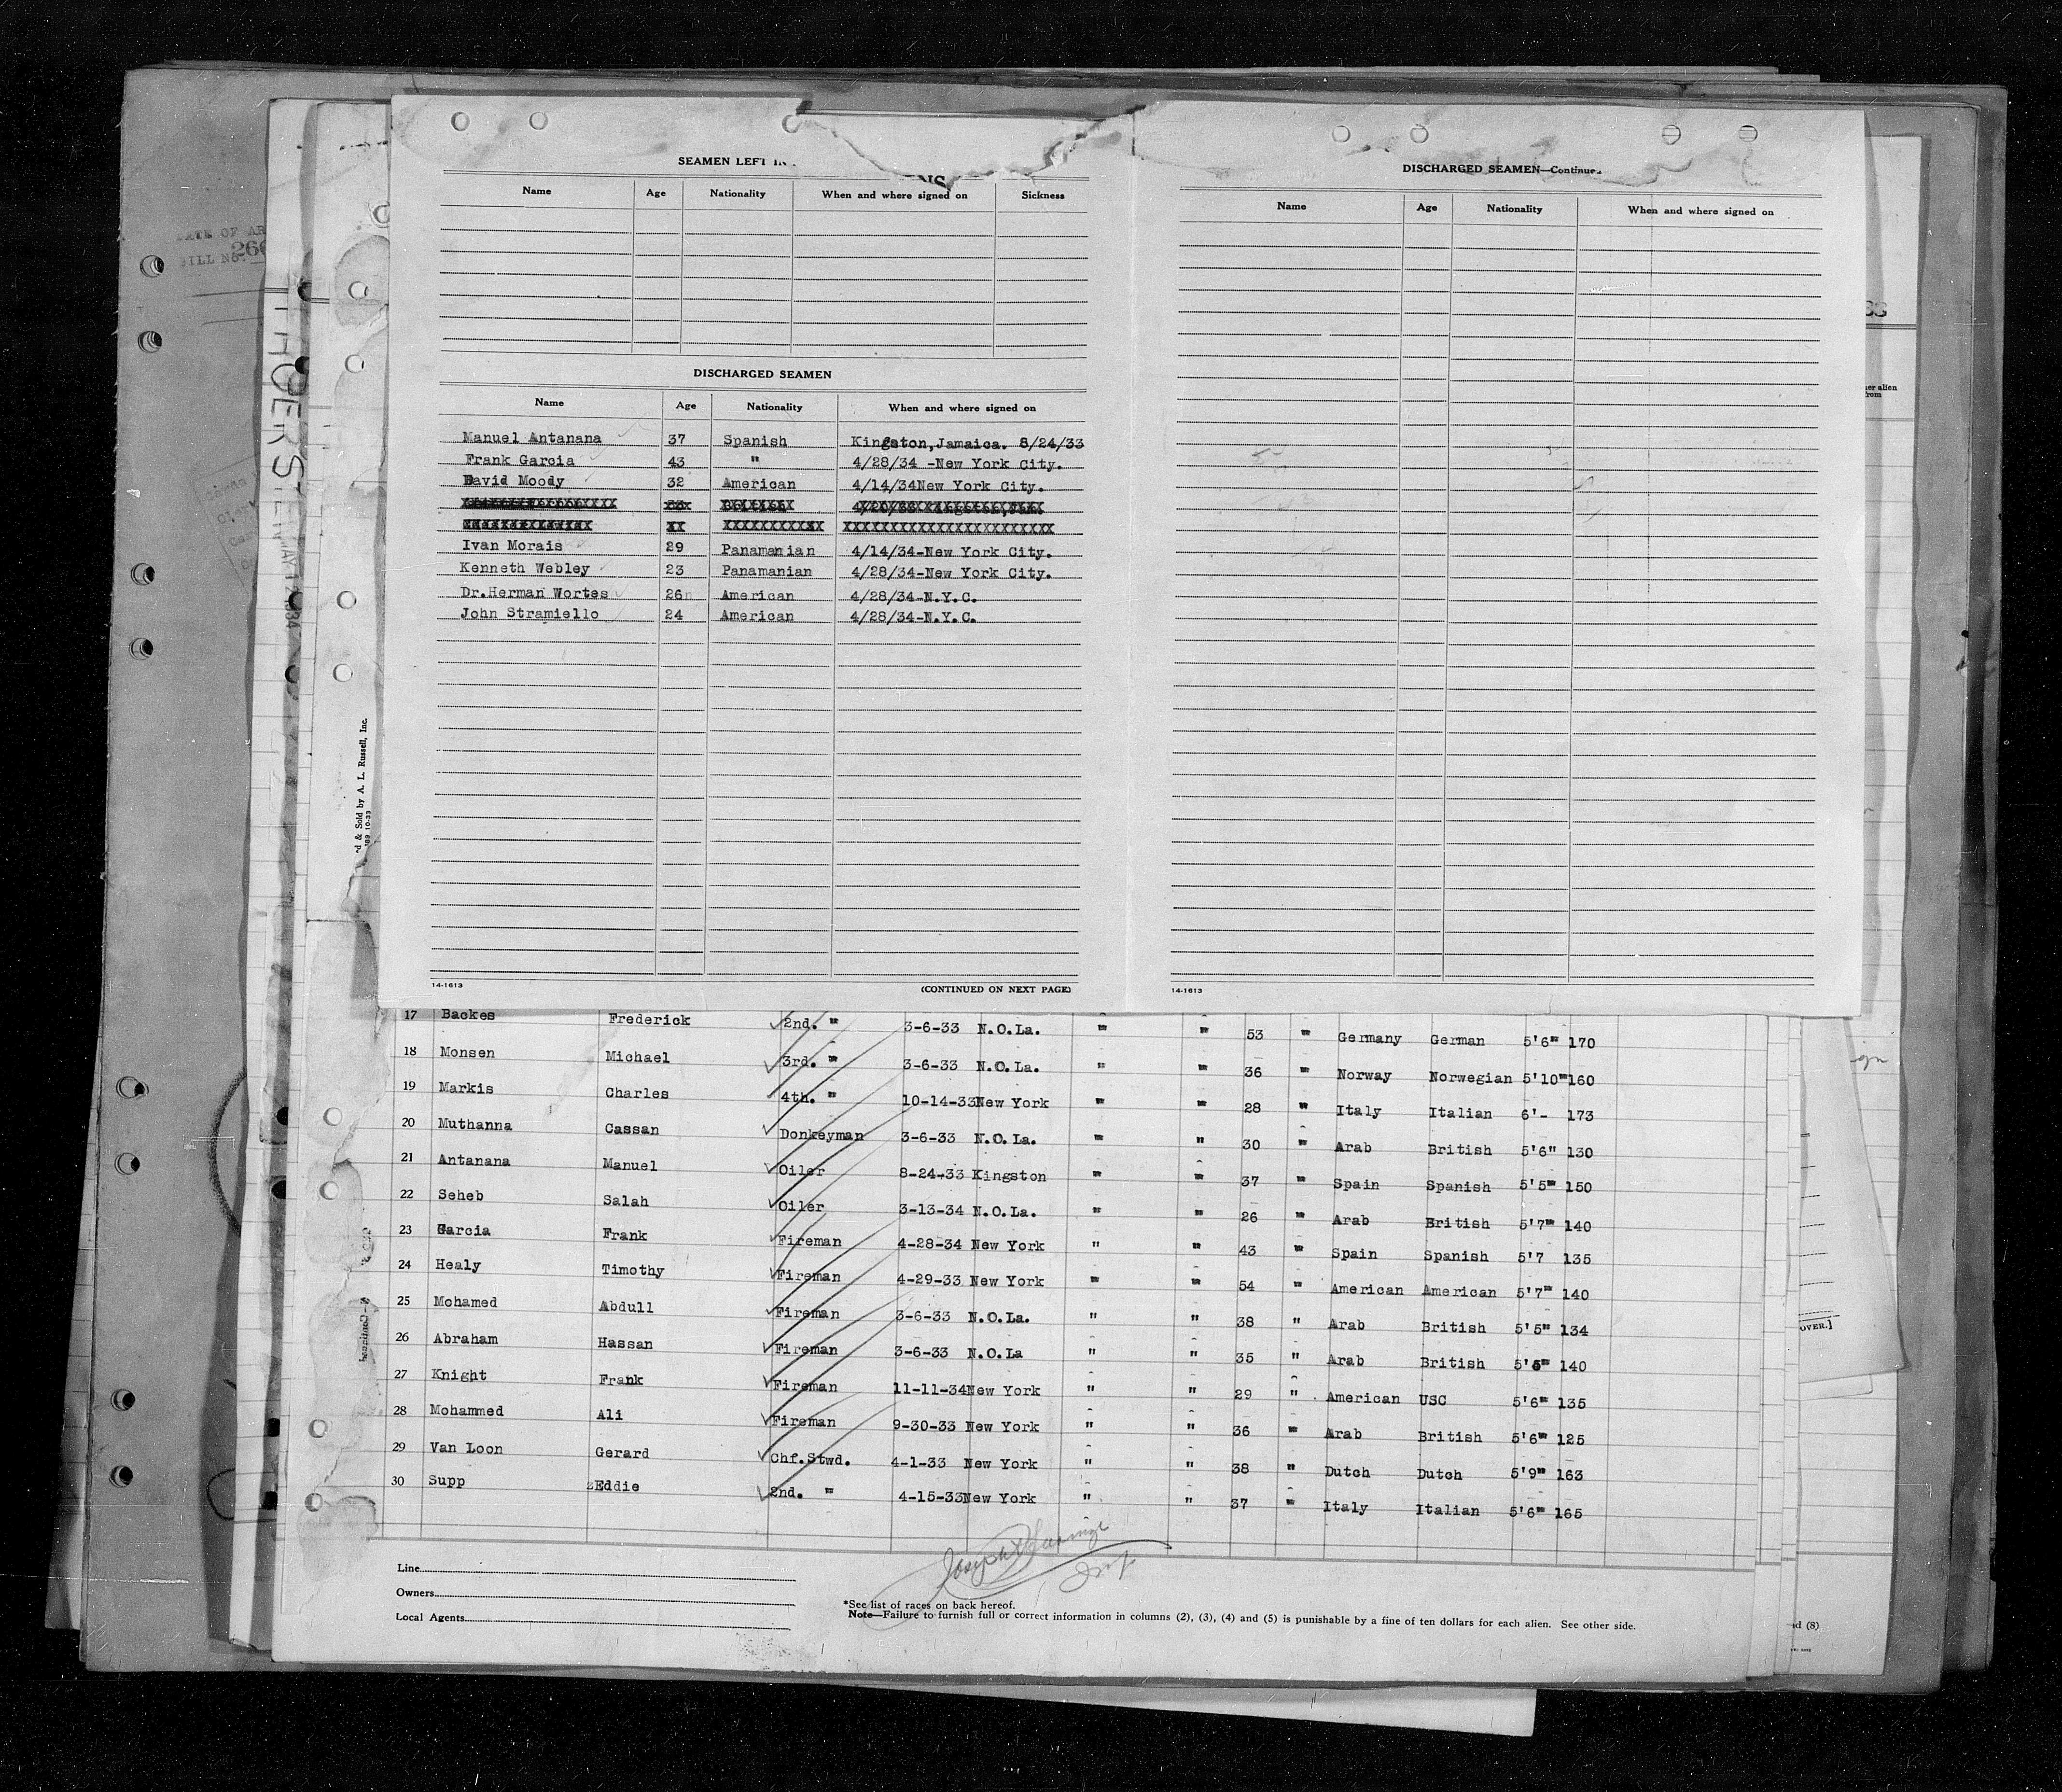 SEAMEN LEFT IN
Name Age Nationality When and where signed on Sickness
DISCHARGED SEAMEN
Name Age Nationality When and where signed on
Manuel Antanana 37 Spanish Kingston,Jamaica. 8/24/33
Frank Garcia 43 " 4/28/34 -New York City.
David Moody 32 American 4/14/34New York City.
Ivan Morais 29 Panamanian 4/14/34-New York City.
Kenneth Webley 23 Panamanian 4/28/34-New York City.
Dr.Herman Wortes 26 American 4/28/34-N.Y.C.
John Stramiello 24 American 4/28/34-N.Y.C.
14-1613 (CONTINUED ON NEXT PAGE)
DISCHARGED SEAMEN—Continued
Name Age Nationality When and where signed on
14-1613
17 Backes Frederick 2nd. " 3-6-33 N.O.La. " " 53 " Germany German 5'6" 170
18 Monsen Michael 3rd. " 3-6-33 N.O.La. " " 36 " Norway Norwegian 5'10" 160
19 Markis Charles 4th. " 10-14-33 New York " " 28 " Italy Italian 6'- 173
20 Muthanna Cassan Donkeyman 3-6-33 N.O.La. " " 30 " Arab British 5'6" 130
21 Antanana Manuel Oiler 8-24-33 Kingston " " 37 " Spain Spanish 5'5" 150
22 Seheb Salah Oiler 3-13-34 N.O.La. " " 26 " Arab British 5'7" 140
23 Garcia Frank Fireman 4-28-34 New York " " 43 " Spain Spanish 5'7 135
24 Healy Timothy Fireman 4-29-33 New York " " 54 " American American 5'7" 140
25 Mohamed Abdull Fireman 3-6-33 N.O.La. " " 38 " Arab British 5'5" 134
26 Abraham Hassan Fireman 3-6-33 N.O.La " " 35 " Arab British 5'6" 140
27 Knight Frank Fireman 11-11-34 New York " " 29 " American USC 5'6" 135
28 Mohammed Ali Fireman 9-30-33 New York " " 36 " Arab British 5'6" 125
29 Van Loon Gerard Chf.Stwd. 4-1-33 New York " " 38 " Dutch Dutch 5'9" 163
30 Supp Eddie 2nd. " 4-15-33 New York " " 37 " Italy Italian 5'6" 165
Line
Owners
Local Agents
*See list of races on back hereof.
Note—Failure to furnish full or correct information in columns (2), (3), (4) and (5) is punishable by a fine of ten dollars for each alien. See other side.
BILL No. 266
d & Sold by A. L. Russell, Inc.
OVER.]